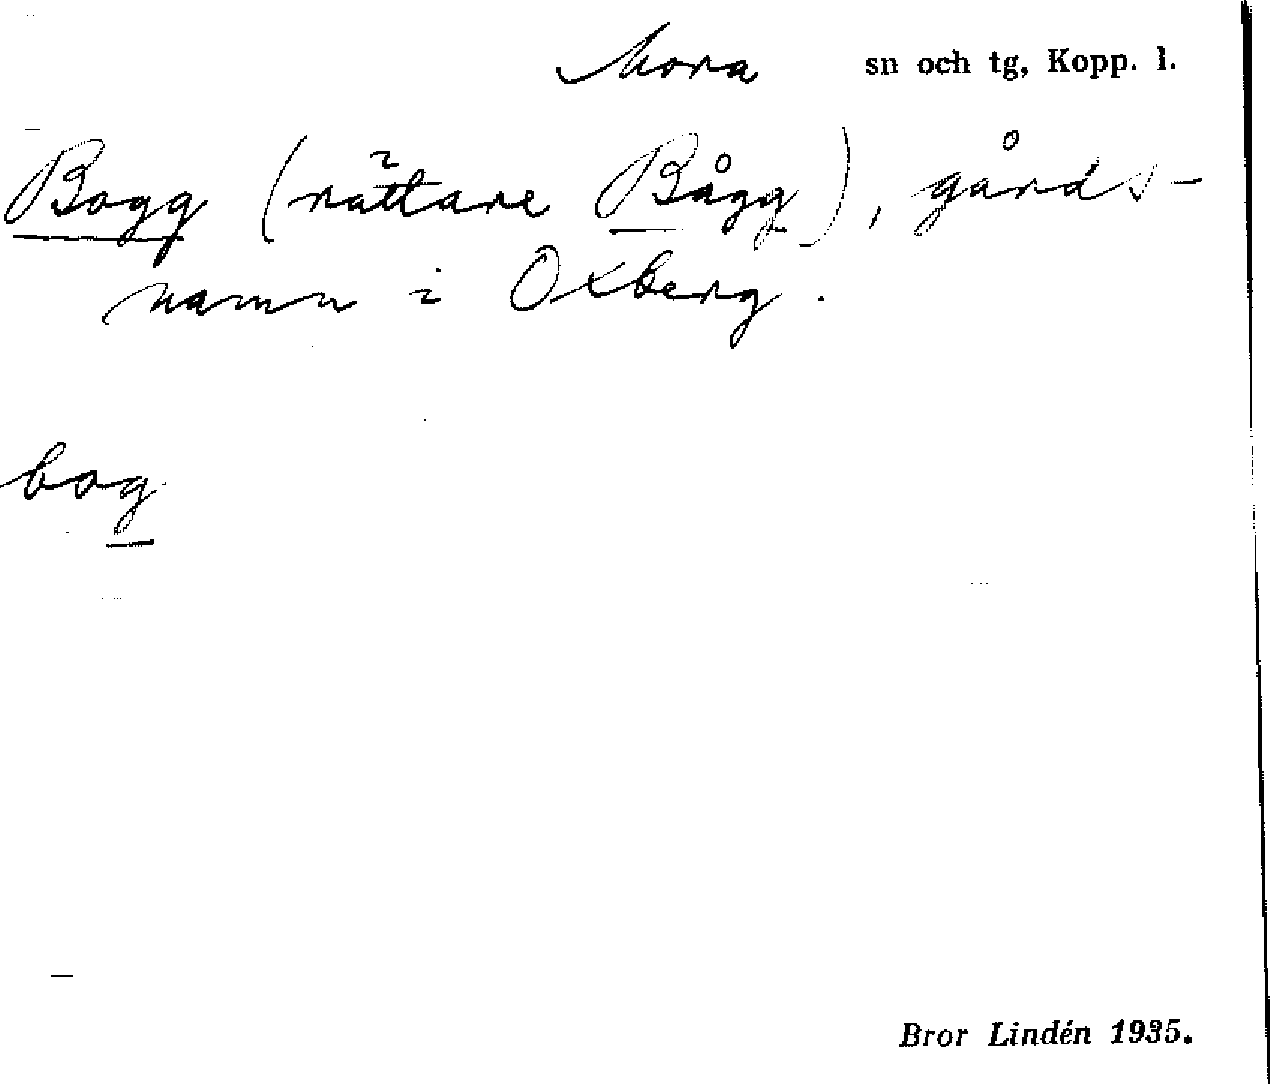 Mora sn och tg, Kopp. l.
Bogg (rättare Bågg), gårds-
namn i Oxberg.
bog
Bror Lindén 1935.